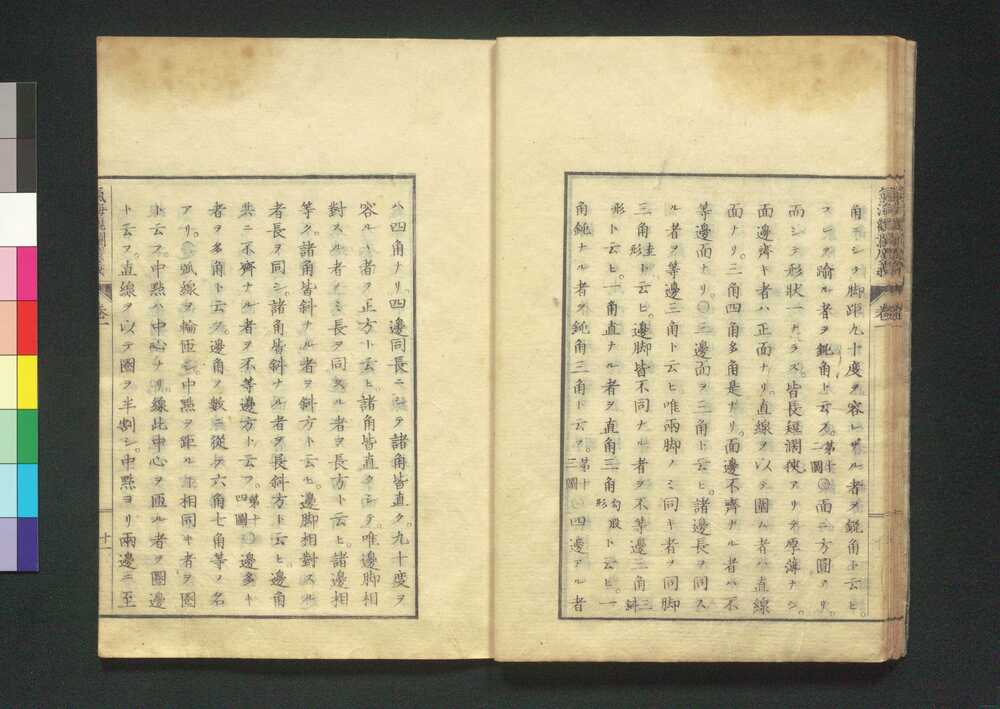 角ニシテ脚距九十度ヲ容レザル者ヲ鋭角ト云ヒ。
コレヲ踰ル者ヲ鈍角ト云フ。第十二圖〇面ニ方圓アリ。
而シテ形狀一ナラズ。皆長短濶狹アリテ厚薄ナシ。
面邊齊キ者ハ正面ナリ。直線ヲ以テ圍ム者ハ直線
面ナリ。三角四角多角是ナリ。面邊不齊ナル者ハ不
等邊面ナリ。〇三邊面ヲ三角ト云ヒ。諸邊長ヲ同ス
ル者ヲ等邊三角ト云ヒ唯兩脚ノミ同キ者ヲ同脚
三角圭形ト云ヒ。邊脚皆不同ナル者ヲ不等邊三角三銖
形ト云ヒ。一角直ナル者ヲ直角三角勾股形ト云ヒ。一
角鈍ナル者ヲ鈍角三角ト云フ。第十三圖〇四邊アル者
ハ四角ナリ。四邊同長ニシテ諸角皆直ク。九十度ヲ
容ルヽ者ヲ正方ト云ヒ。諸角皆直クシテ。唯邊脚相
對スル者ノミ長ヲ同スル者ヲ長方ト云ヒ。諸邊相
等ク。諸角皆斜ナル者ヲ斜方ト云ヒ。邊脚相對スル
者長ヲ同シ。諸角皆斜ナル者ヲ長斜方ト云ヒ。邊角
共ニ不齊ナル者ヲ不等邊方ト云フ。第十四圖〇邊多キ
者ヲ多角ト云フ。邊角ノ數ニ從テ六角七角等ノ名
アリ。〇弧線ヲ輪匝シ。中點ヲ距ル𪜈相同キ者ヲ圈
ト云フ。中點ハ中心ナリ。線此中心ヲ匝ル者ヲ圈邊
ト云フ。直線ヲ以テ圈ヲ半割シ。中點ヨリ兩邊ニ至
卷一
十一